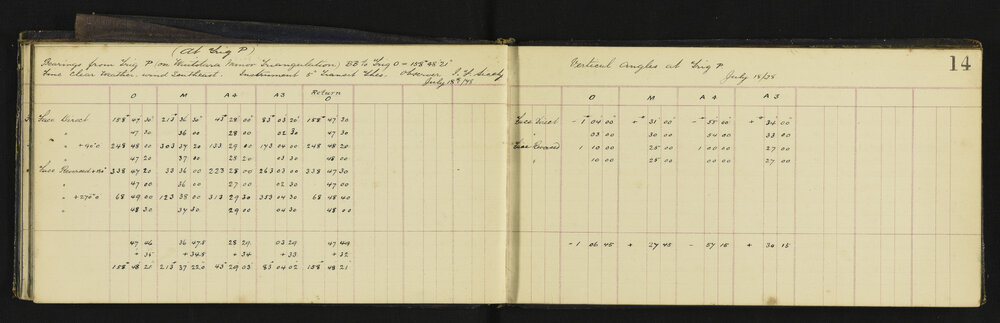 (At Trig P)
Bearings from Trig P (on Waitotara Minor Triangulation) BB to Trig O = 158° 48' 21"
Fine Clear Weather. wind Southeast. Instrument 5" Transit Theo. Observer
July 18th/98
O M A4 A3 Return O
Face Direct 158° 47 30 213° 36 30 43° 28 00 83° 03 20 158° 47 30
" 47 30 36 00 28 00 02 30 47 30
" +90° 248 48 00 303 37 20 133 29 00 173 04 00 248 48 20
" 47 20 37 00 28 20 03 30 48 00
Face Reversed +180° 338 47 20 33 36 00 223 28 00 263 03 00 338 47 30
" 47 00 36 00 27 00 02 30 47 00
" +270° 68 49 00 123 38 00 313 29 30 353 04 30 68 48 40
" 48 30 37 30 29 00 04 30 48 00
47 46 36 47.5 28 29 03 29 47 49
+ 35 + 34.5 + 34 + 33 + 32
158° 48 21 213° 37 22 43° 29 03 83° 04 02 158° 48 21
Vertical Angles at Trig P.
14
July 18/98
O M A4 A3
Face Direct - 1° 04 00 +° 31 00 -° 55 00 +° 34 00
" 03 00 30 00 54 00 33 00
Face Reversed 1 10 00 25 00 1 00 00 27 00
" 10 00 25 00 00 00 27 00
- 1 06 45 + 27 45 - 57 15 + 30 15